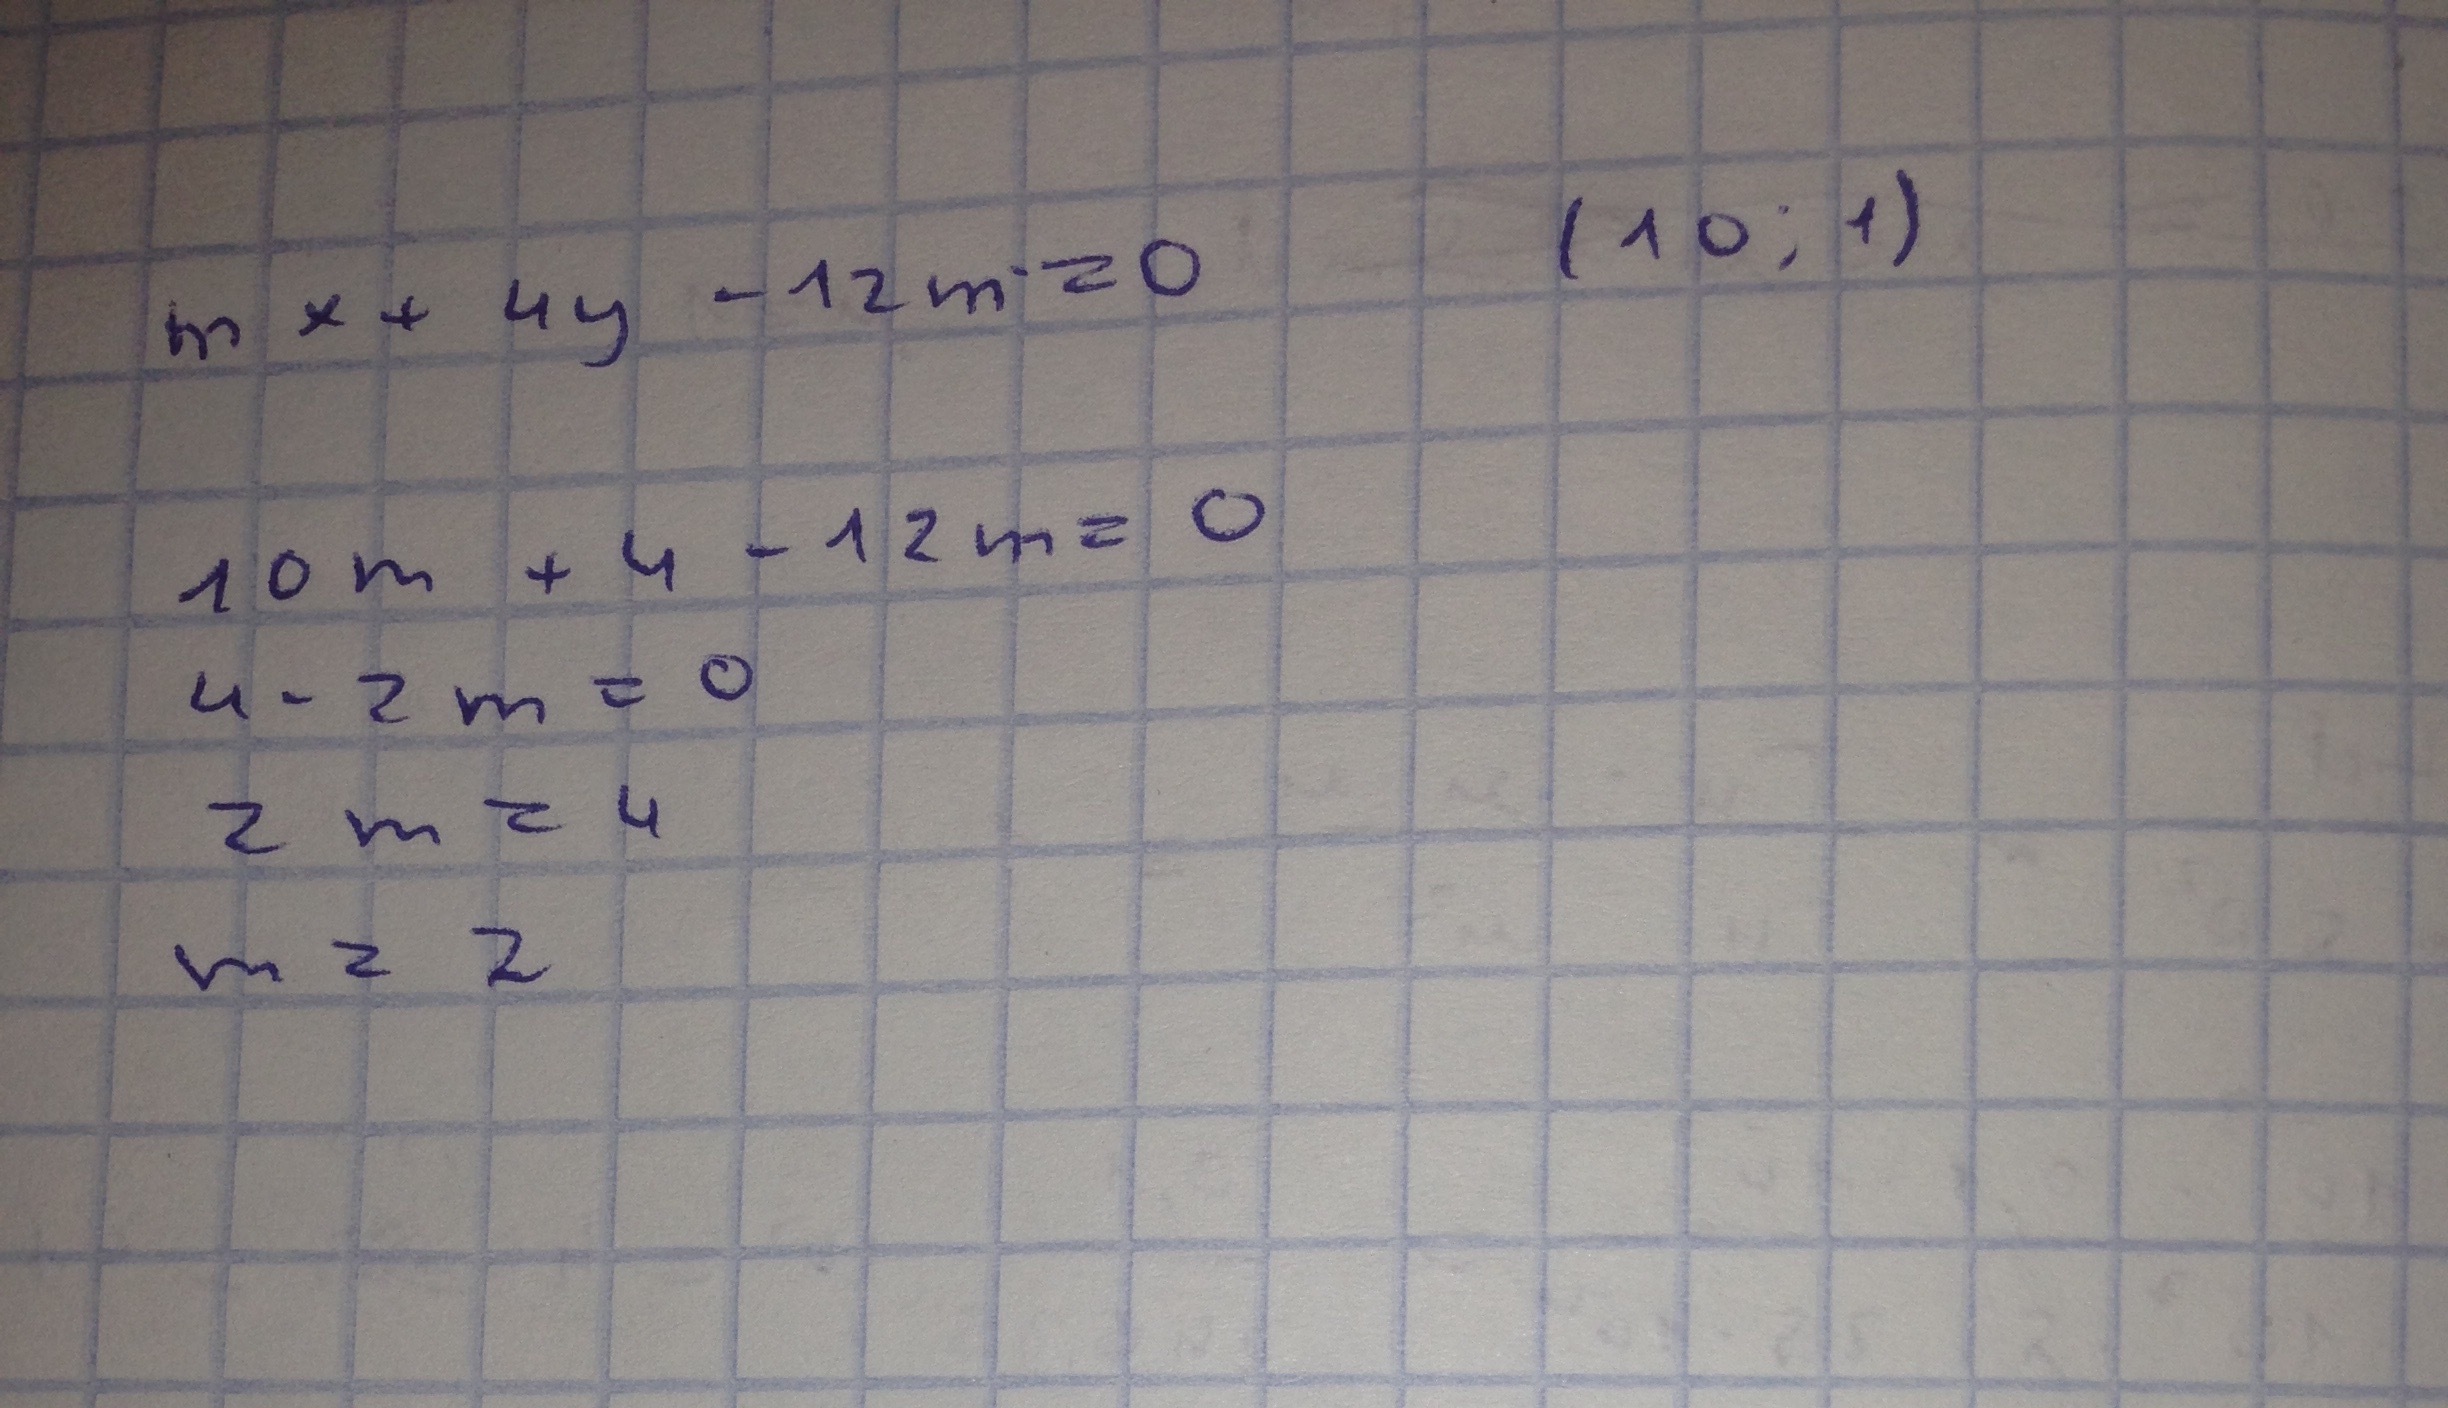 mx + 4y - 12m = 0 (10; 1)
10m + 4 - 12m = 0
4 - 2m = 0
2m = 4
m = 2